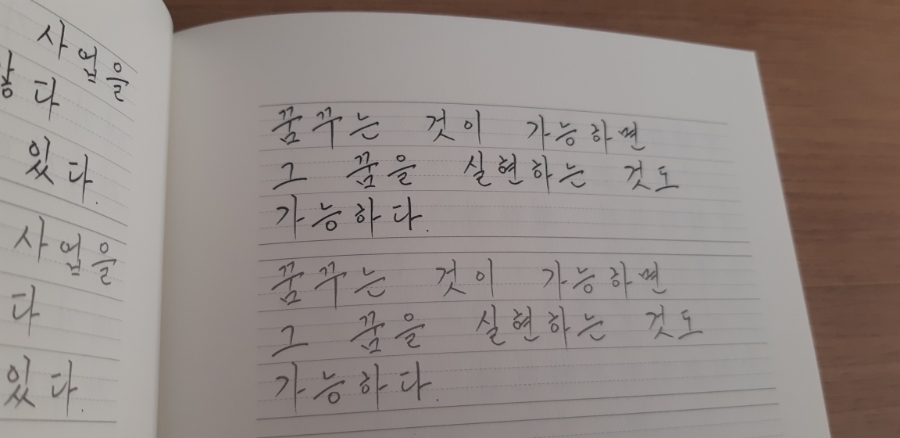 사업을
않다
있다.
사업을
다
있다.
꿈꾸는 것이 가능하면
그 꿈을 실현하는 것도
가능하다.
꿈꾸는 것이 가능하면
그 꿈을 실현하는 것도
가능하다.